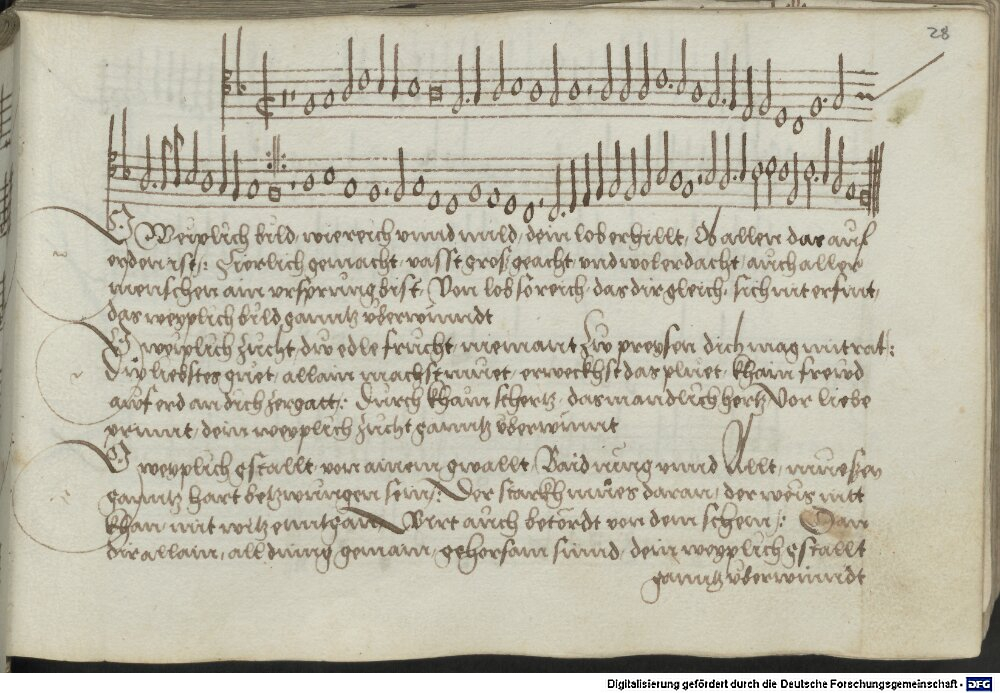 28
O Weiplich bild, wie reich vnnd mild, dein lob erhillt, Ob allen das auf
erden ist :/: Zierlich gemacht, vasst gros geacht, vnd wol erdacht, auch aller
menschen ain vrsprung bist, Von lob so reich, das dir gleich, sich nit erfint,
das weyplich bild ganntz vberwinndt
O weiplich zucht, dw edle frucht, niemant zw preysen dich mag mit rat :/:
Dw liebstes guet, allain machst muet, erweckhst das pluet, khain frewd
auf erd an dich zergatt :/: Durch khain schertz, das mandlich hertz, Vor liebe
prinnt, dein weyplich zucht ganntz vberwinnt
O weyplich gstallt, von ainem gwallt, Baid iung vnnd Allt, muessen
ganntz hart betzwungen sein :/: Der starkh mues daran, der weis nitt
khan, mit witz enntgan, Wirt auch betördt von dem schein :/: Dan
dir allain, all ding gemain, gehorsam sinnd, dein weyplich gstallt
ganntz vberwinndt
Digitalisierung gefördert durch die Deutsche Forschungsgemeinschaft - DFG